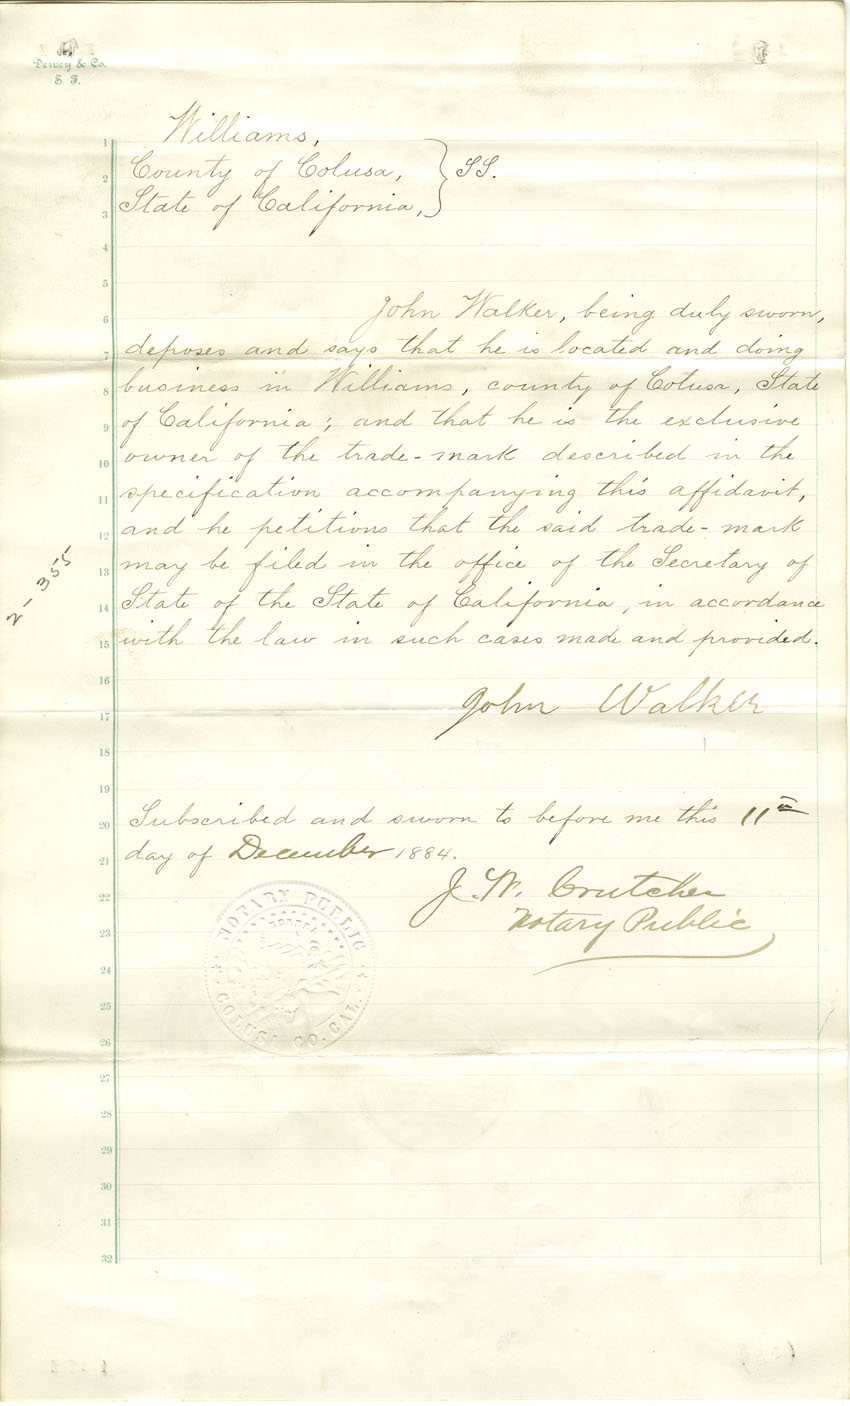 Dewey & Co.
S. F.
Williams,
County of Colusa, } SS.
State of California,
John Walker, being duly sworn,
deposes and says that he is located and doing
business in Williams, county of Colusa, State
of California; and that he is the exclusive
owner of the trade-mark described in the
specification accompanying this affidavit,
and he petitions that the said trade-mark
may be filed in the office of the Secretary of
State of the State of California, in accordance
with the law in such cases made and provided.
John Walker
Subscribed and sworn to before me this 11th
day of December 1884.
J. W. Crutcher
Notary Public
NOTARY PUBLIC
COLUSA CO. CAL.
2-355
1
2
3
4
5
6
7
8
9
10
11
12
13
14
15
16
17
18
19
20
21
22
23
24
25
26
27
28
29
30
31
32